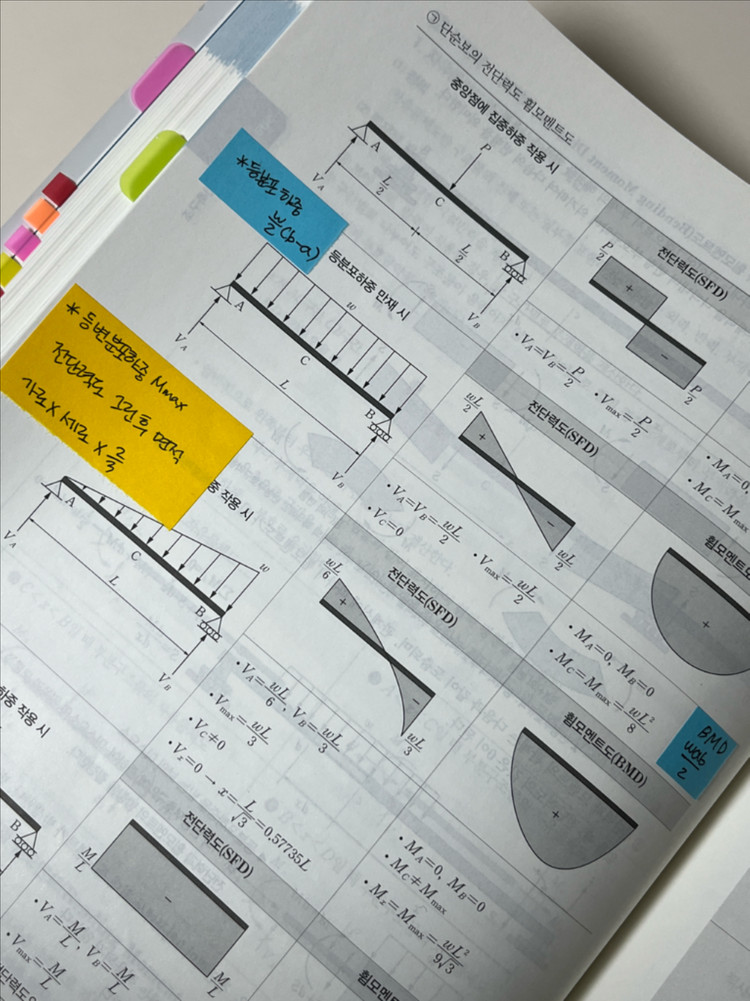 ㉠ 단순보의 전단력도 휨모멘트도
중앙점에 집중하중 작용 시
P
A
V_A
L/2
C
L/2
B
V_B
전단력도(SFD)
P/2
+
-
P/2
• V_A=V_B=P/2 • V_max=P/2
• M_A=0,
• M_C=M_max
*등분포하중
w/2(b-a)
등분포하중 만재 시
w
A
V_A
C
L
B
V_B
전단력도(SFD)
wL/2
+
-
wL/2
• V_A=V_B=wL/2 • V_max=wL/2
• V_C=0
휨모멘트도
+
• M_A=0, M_B=0
• M_C=M_max=wL²/8
*등변분포하중 Mmax
전단력도 그린 후 면적
가로 X 세로 X 2/3
중 작용 시
w
A
V_A
C
L
B
V_B
전단력도(SFD)
wL/6
+
-
wL/3
• V_A=wL/6, V_B=wL/3
• V_max=wL/3
• V_C≠0
• V_x=0 → x=L/√3=0.57735L
휨모멘트도(BMD)
+
BMD
wab/2
• M_A=0, M_B=0
• M_C≠M_max
• M_x=M_max=wL²/9√3
하중 작용 시
B
전단력도(SFD)
M/L
-
M/L
• V_A=M/L, V_B=M/L
• V_max=M/L
휨모멘트도